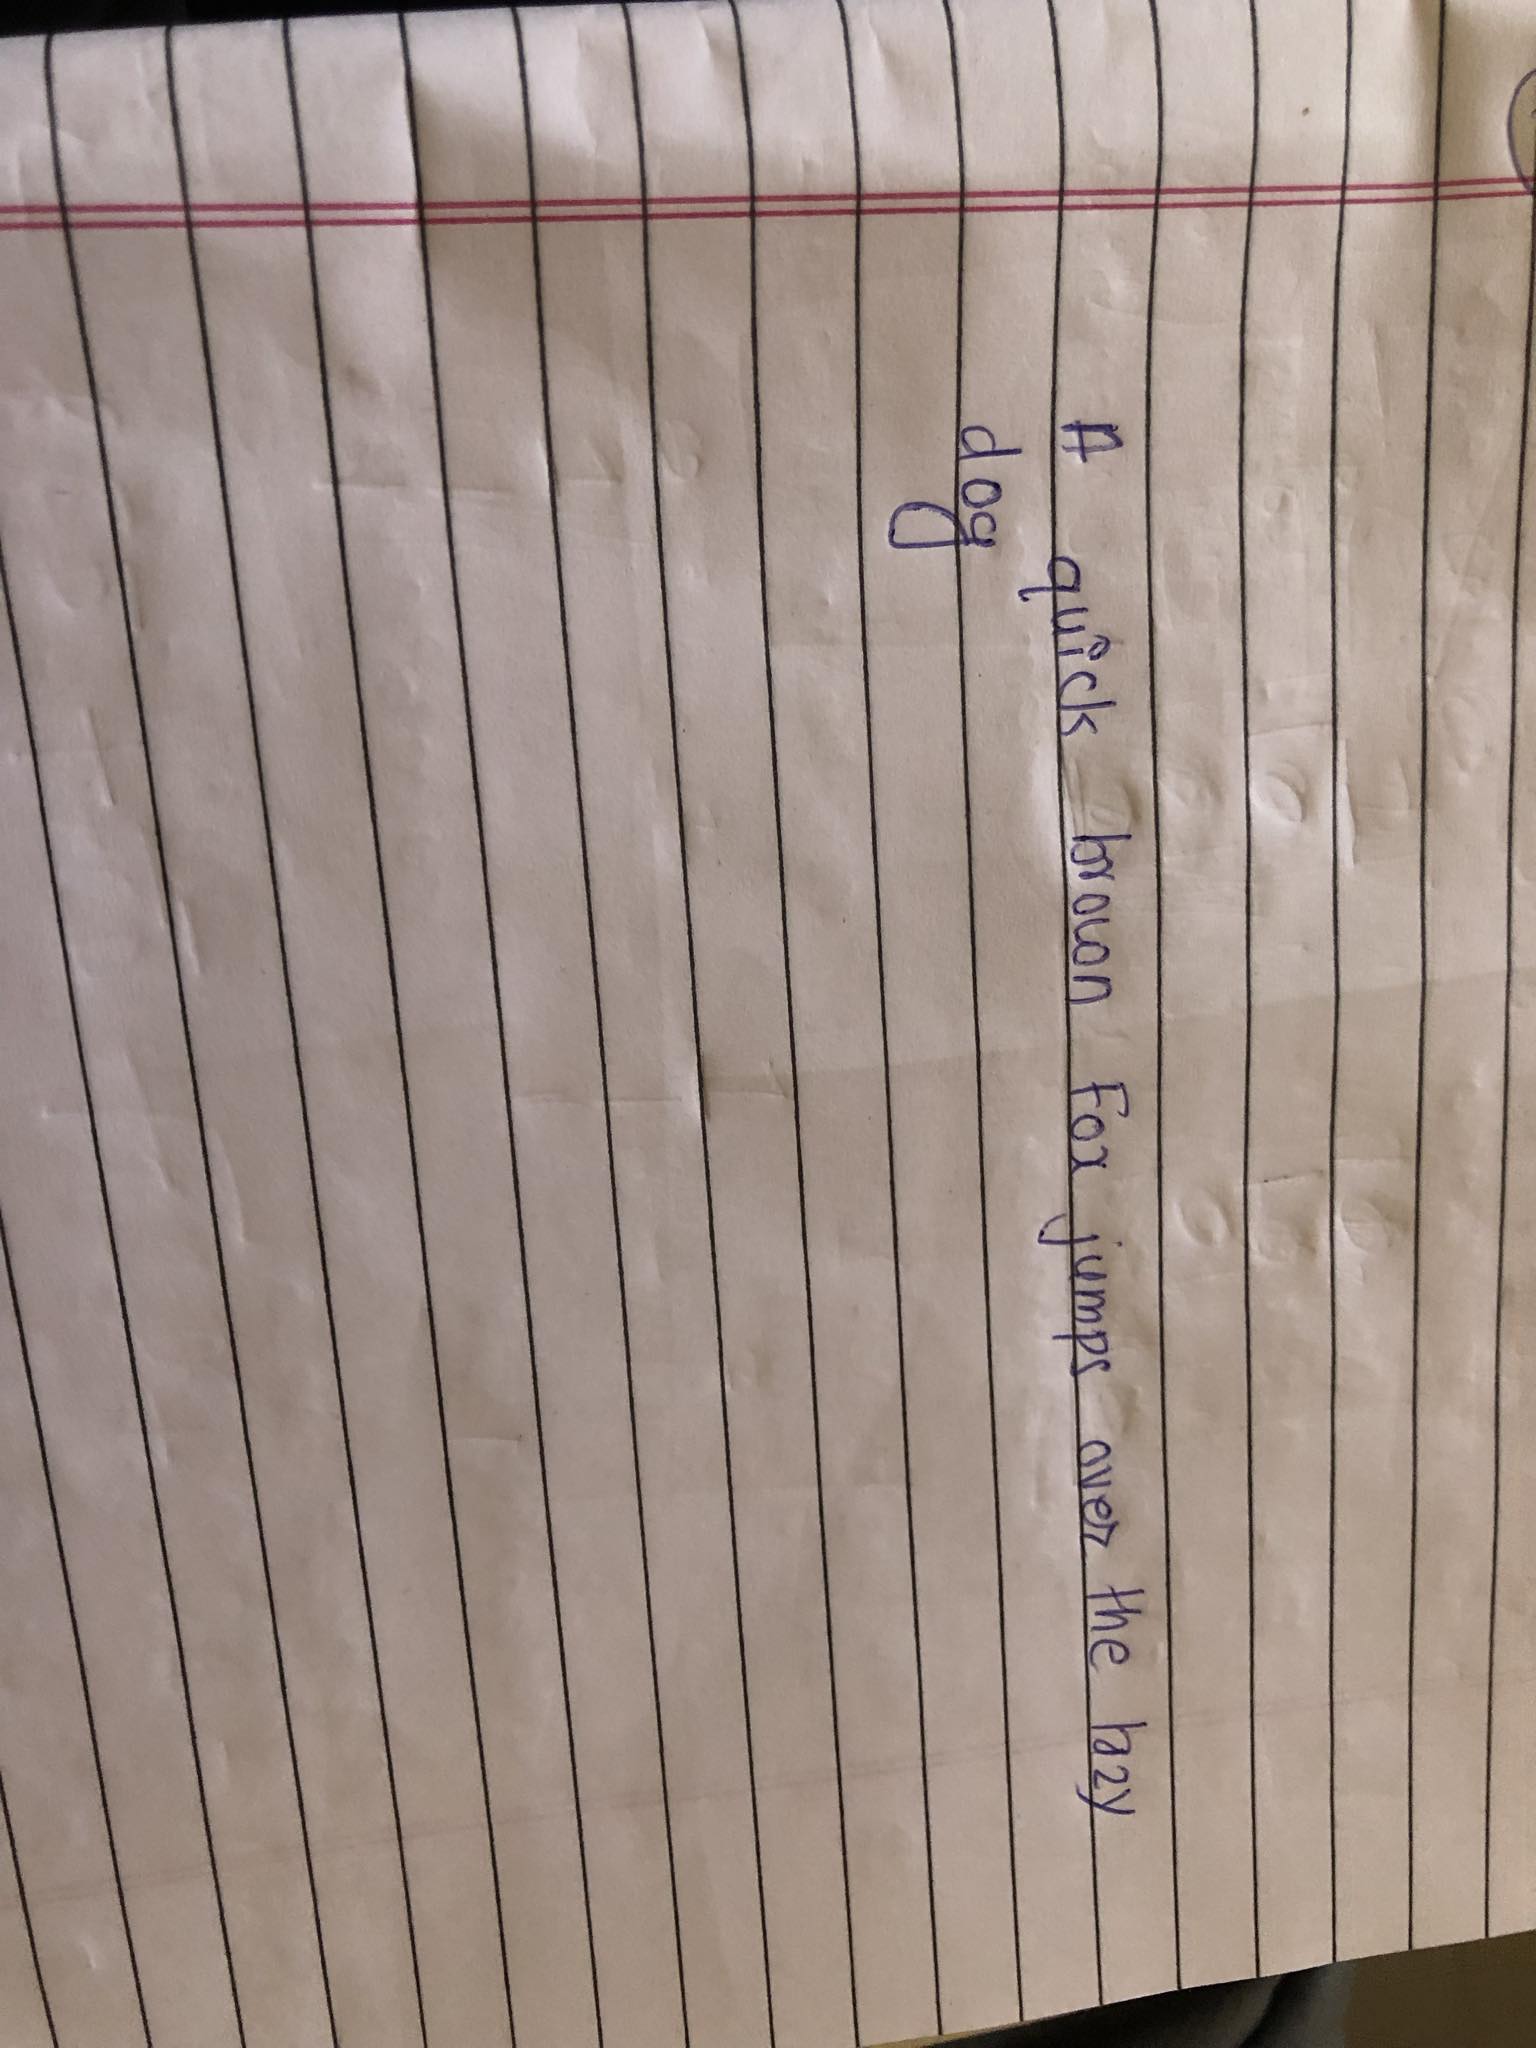 A quick brown Fox jumps over the lazy
dog